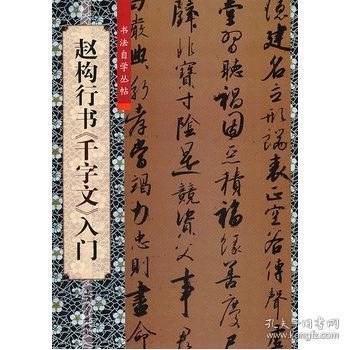 书法自学丛帖
赵构行书《千字文》入门
德建名立形端表正空谷传声
堂习听祸因恶积福缘善庆尺
璧非宝寸阴是竞资父事
曰严与敬孝当竭力忠则尽命
孔夫子旧书网